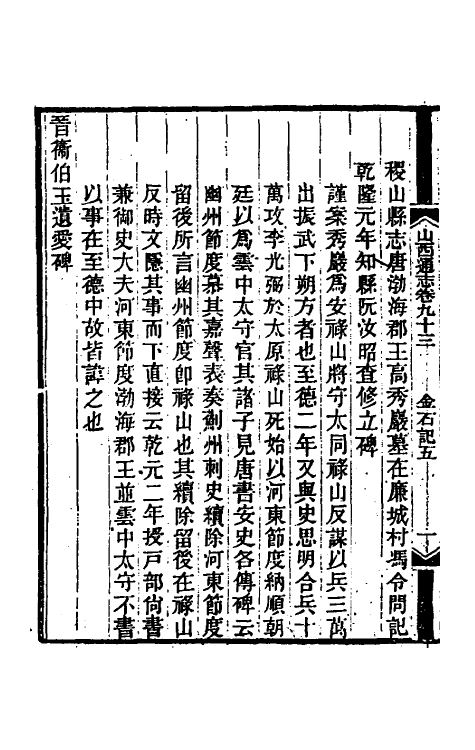 山西通志卷九十三　金石記五
稷山縣志唐渤海郡王高秀巖墓在廉城村馮令問記
乾隆元年知縣阮汝昭查修立碑
謹案秀巖爲安祿山將守太同祿山反謀以兵三萬
出振武下朔方者也至德二年又與史思明合兵十
萬攻李光弼於太原祿山死始以河東節度納順朝
廷以爲雲中太守官其諸子見唐書安史各傳碑云
幽州節度慕其嘉聲表奏薊州刺史續除河東節度
留後所言幽州節度卽祿山也其續除留後在祿山
反時文隱其事而下直接云乾元二年授戸部尙書
兼御史大夫河東節度渤海郡王並雲中太守不書
以事在至德中故皆諱之也
晉衞伯玉遺愛碑